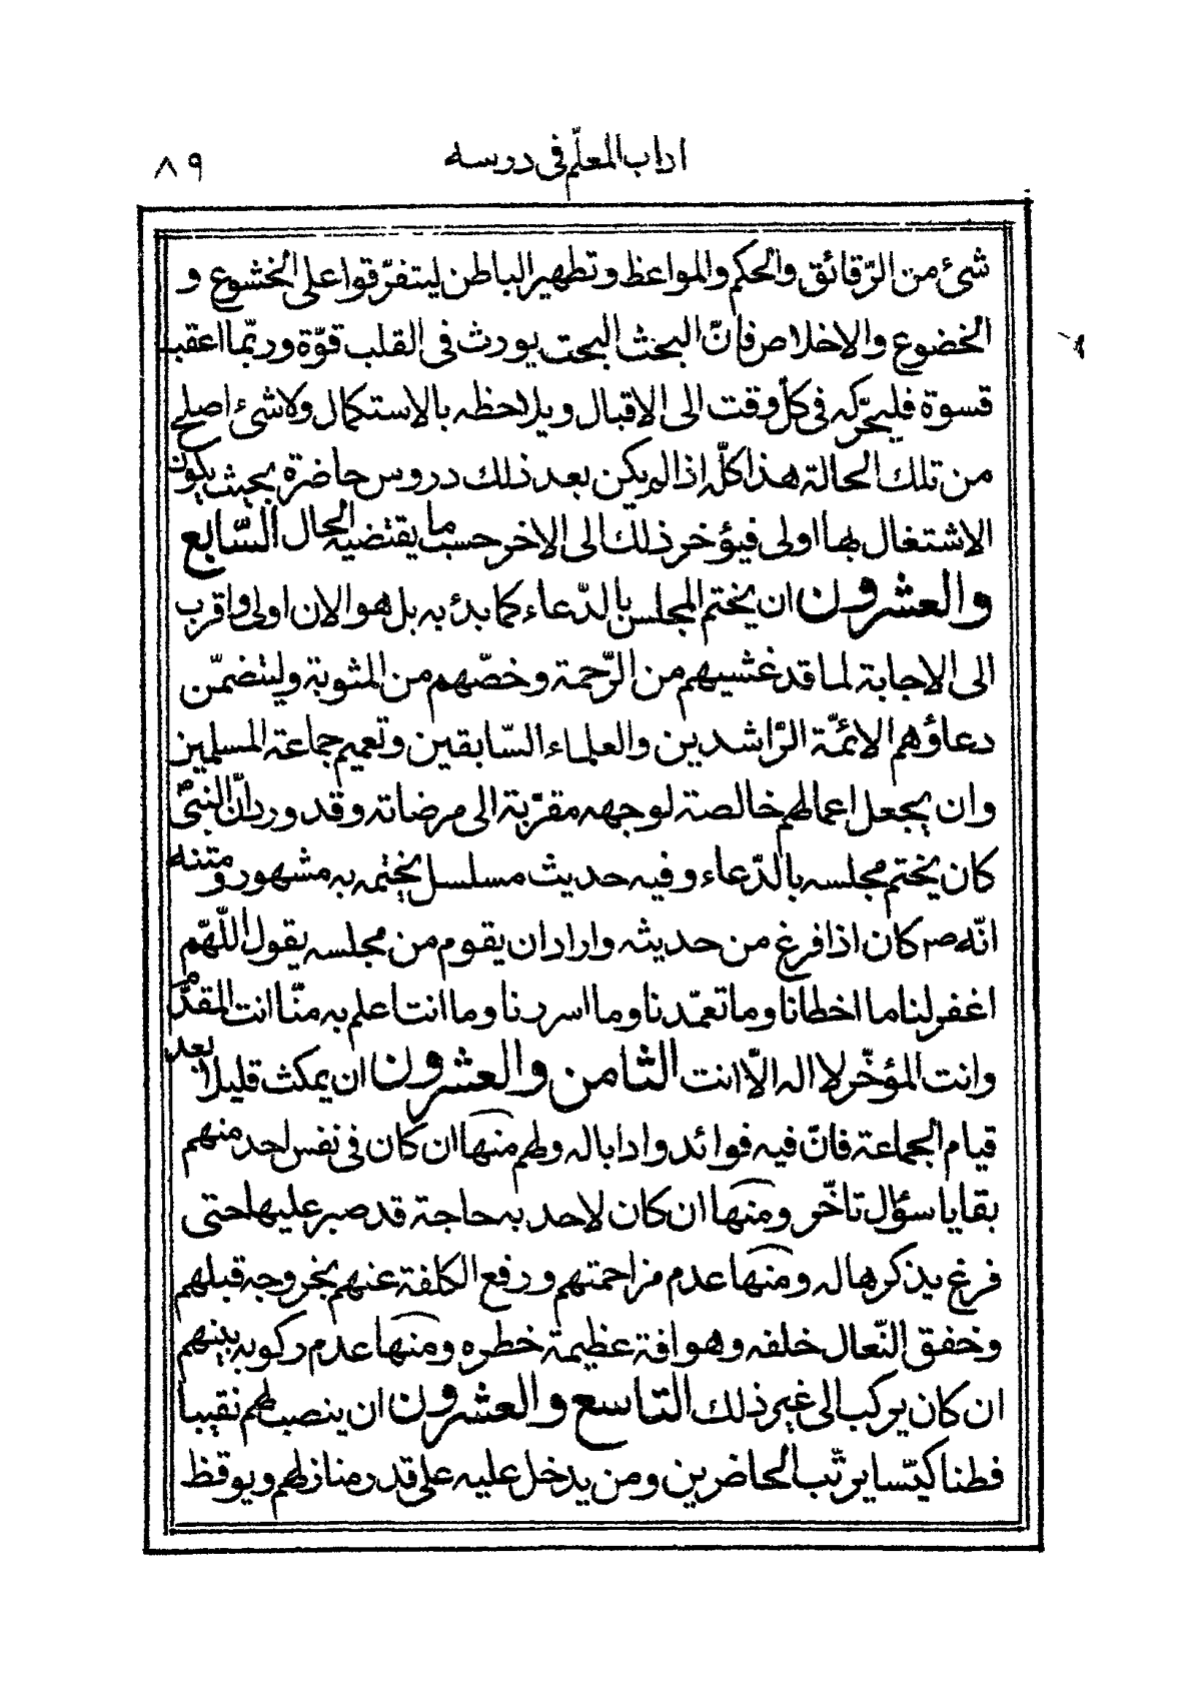 اداب المعلّم فى درسه
٨٩
شئ من الرّقائق والحكم والمواعظ وتطهير الباطن ليتفرّقوا على الخشوع و
الخضوع والاخلاص فانّ البحث البحت يورث فى القلب قوّة وربّما اعقب
قسوة فليحرّكه فى كلّ وقت الى الاقبال ويلاحظه بالاستكمال ولا شئ اصلح
من تلك الحالة هذا كلّه اذا لم يكن بعد ذلك دروس حاضرة بحيث يكون
الاشتغال بها اولى فيؤخر ذلك الى الاخر حسب ما يقتضيه الحال السّابع
والعشرون ان يختم المجلس بالدّعاء كما بدئ به بل هو الان اولى واقرب
الى الاجابة لما قد غشيهم من الرّحمة وخصّهم من المثوبة وليتضمّن
دعاؤهم الائمّة الرّاشدين والعلماء السّابقين وتعميم جماعة المسلمين
وان يجعل اعمالهم خالصة لوجهه مقرّبة الى مرضاته وقد ورد انّ النبىّ ص
كان يختم مجلسه بالدّعاء وفيه حديث مسلسل يختمه به مشهور ومتنه
انّه ص كان اذا فرغ من حديثه واراد ان يقوم من مجلسه يقول اللّهمّ
اغفر لنا ما اخطانا وما تعمّدنا وما اسررنا وما انت اعلم به منّا انت المقدّم
وانت المؤخّر لا اله الّا انت الثامن والعشرون ان يمكث قليلا بعد
قيام الجماعة فانّ فيه فوائد وادابا له ولهم منها ان كان فى نفس احد منهم
بقايا سؤال تاخّر ومنها ان كان لاحد به حاجة قد صبر عليها حتى
فرغ يذكرها له ومنها عدم مزاحمتهم ورفع الكلفة عنهم بخروجه قبلهم
وخفق النّعال خلفه وهو افة عظيمة خطره ومنها عدم ركوبه بينهم
ان كان يركب الى غير ذلك التاسع والعشرون ان ينصب لهم نقيبا
فطنا كيّسا يرتّب الحاضرين ومن يدخل عليه على قدر منازلهم ويوقظ